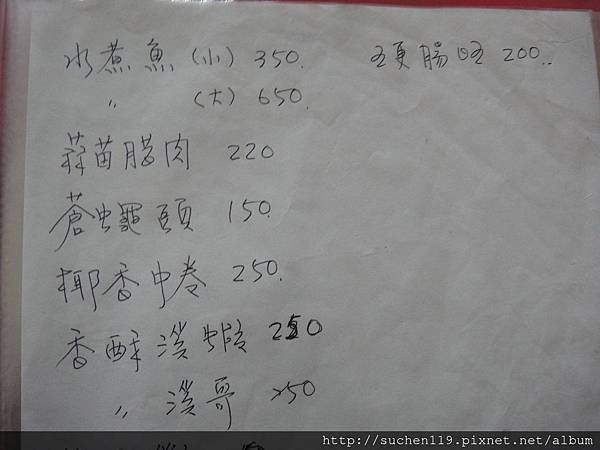 水煮魚(小) 350. 旺腸旺 200..
〃 (大) 650.
蒜苗腊肉 220
蒼蠅頭 150.
椰香中卷 250.
香酥溪蝦 250
〃 溪哥 250
http://suchen119.pixnet.net/album